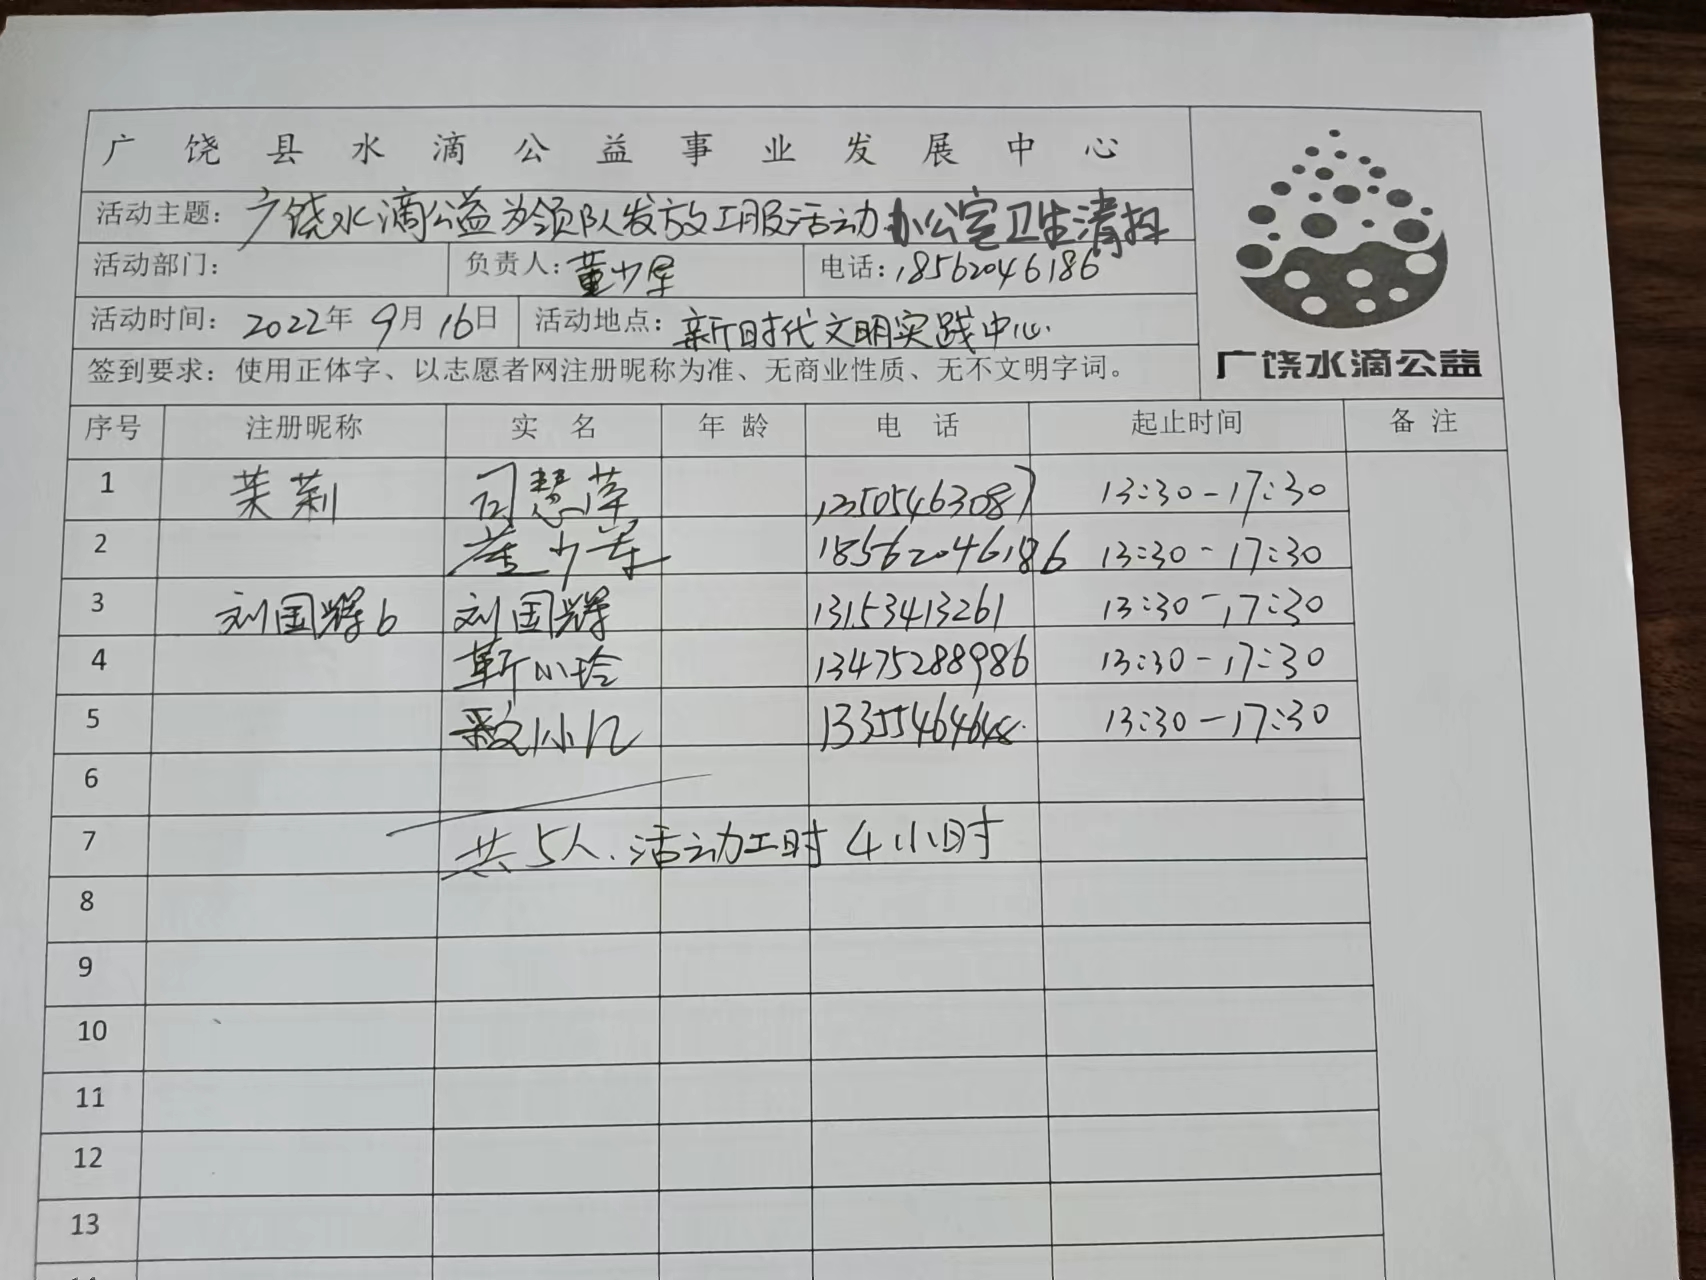 广饶县水滴公益事业发展中心
活动主题：广饶水滴公益为领队发放工服活动.办公室卫生清扫
活动部门： 负责人：董少军 电话：18562046186
活动时间：2022年 9月 16日 活动地点：新时代文明实践中心.
签到要求：使用正体字、以志愿者网注册昵称为准、无商业性质、无不文明字词。
广饶水滴公益
序号 注册昵称 实 名 年 龄 电 话 起止时间 备 注
1 茉莉 司慧萍 13505463087 13:30-17:30
2 董少军 18562046186 13:30-17:30
3 刘国辉6 刘国辉 13153413261 13:30-17:30
4 靳小玲 13475288986 13:30-17:30
5 13:30-17:30
6
7 共5人.活动工时 4小时
8
9
10
11
12
13